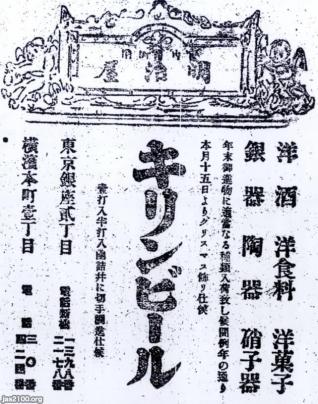 明治屋
洋酒 洋食料 洋菓子
銀器 陶器 硝子器
年末御進物に適當なる種類入荷致し候間例年の通り
本月十五日よりクリスマス飾り仕候
キリンビール
壹打入半打入函詰并に切手調進仕候
東京銀座貳丁目 電話新橋 一三九八番
二一七八番
橫濱本町壹丁目 電話
Jaa2100.org